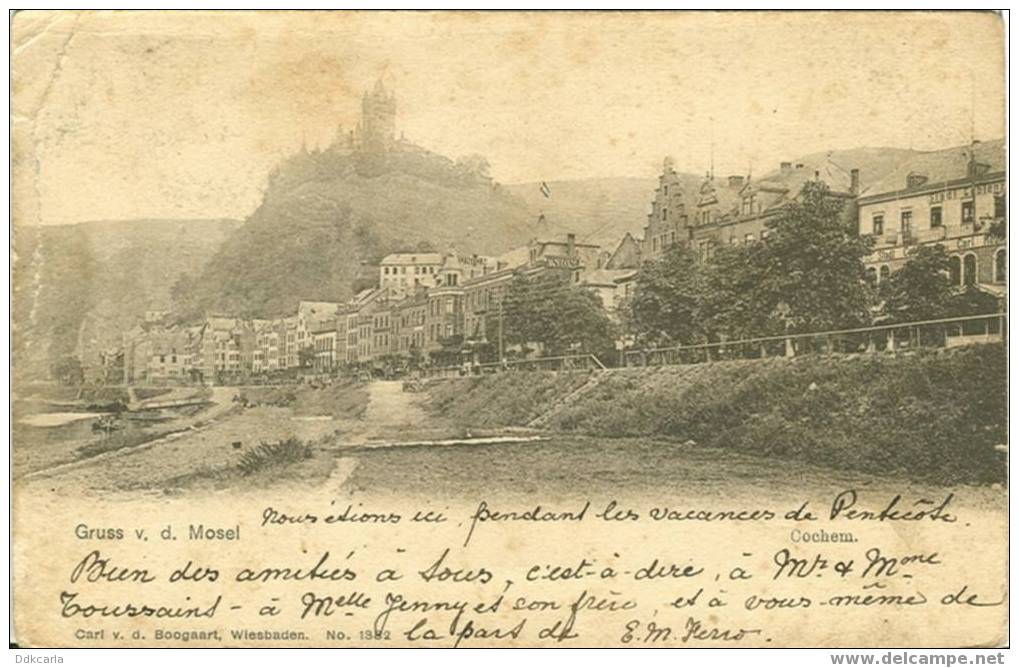 Nous étions ici, pendant les vacances de Pentecôte.
Gruss v. d. Mosel
Cochem.
Bien des amitiés à tous, c'est-à-dire, à Mr & Mme
Toussaint - à Melle Jenny et son frère, et à vous-même de
la part de E. M.
Carl v. d. Boogaart, Wiesbaden. No. 1382
Ddkcarla
www.delcampe.net